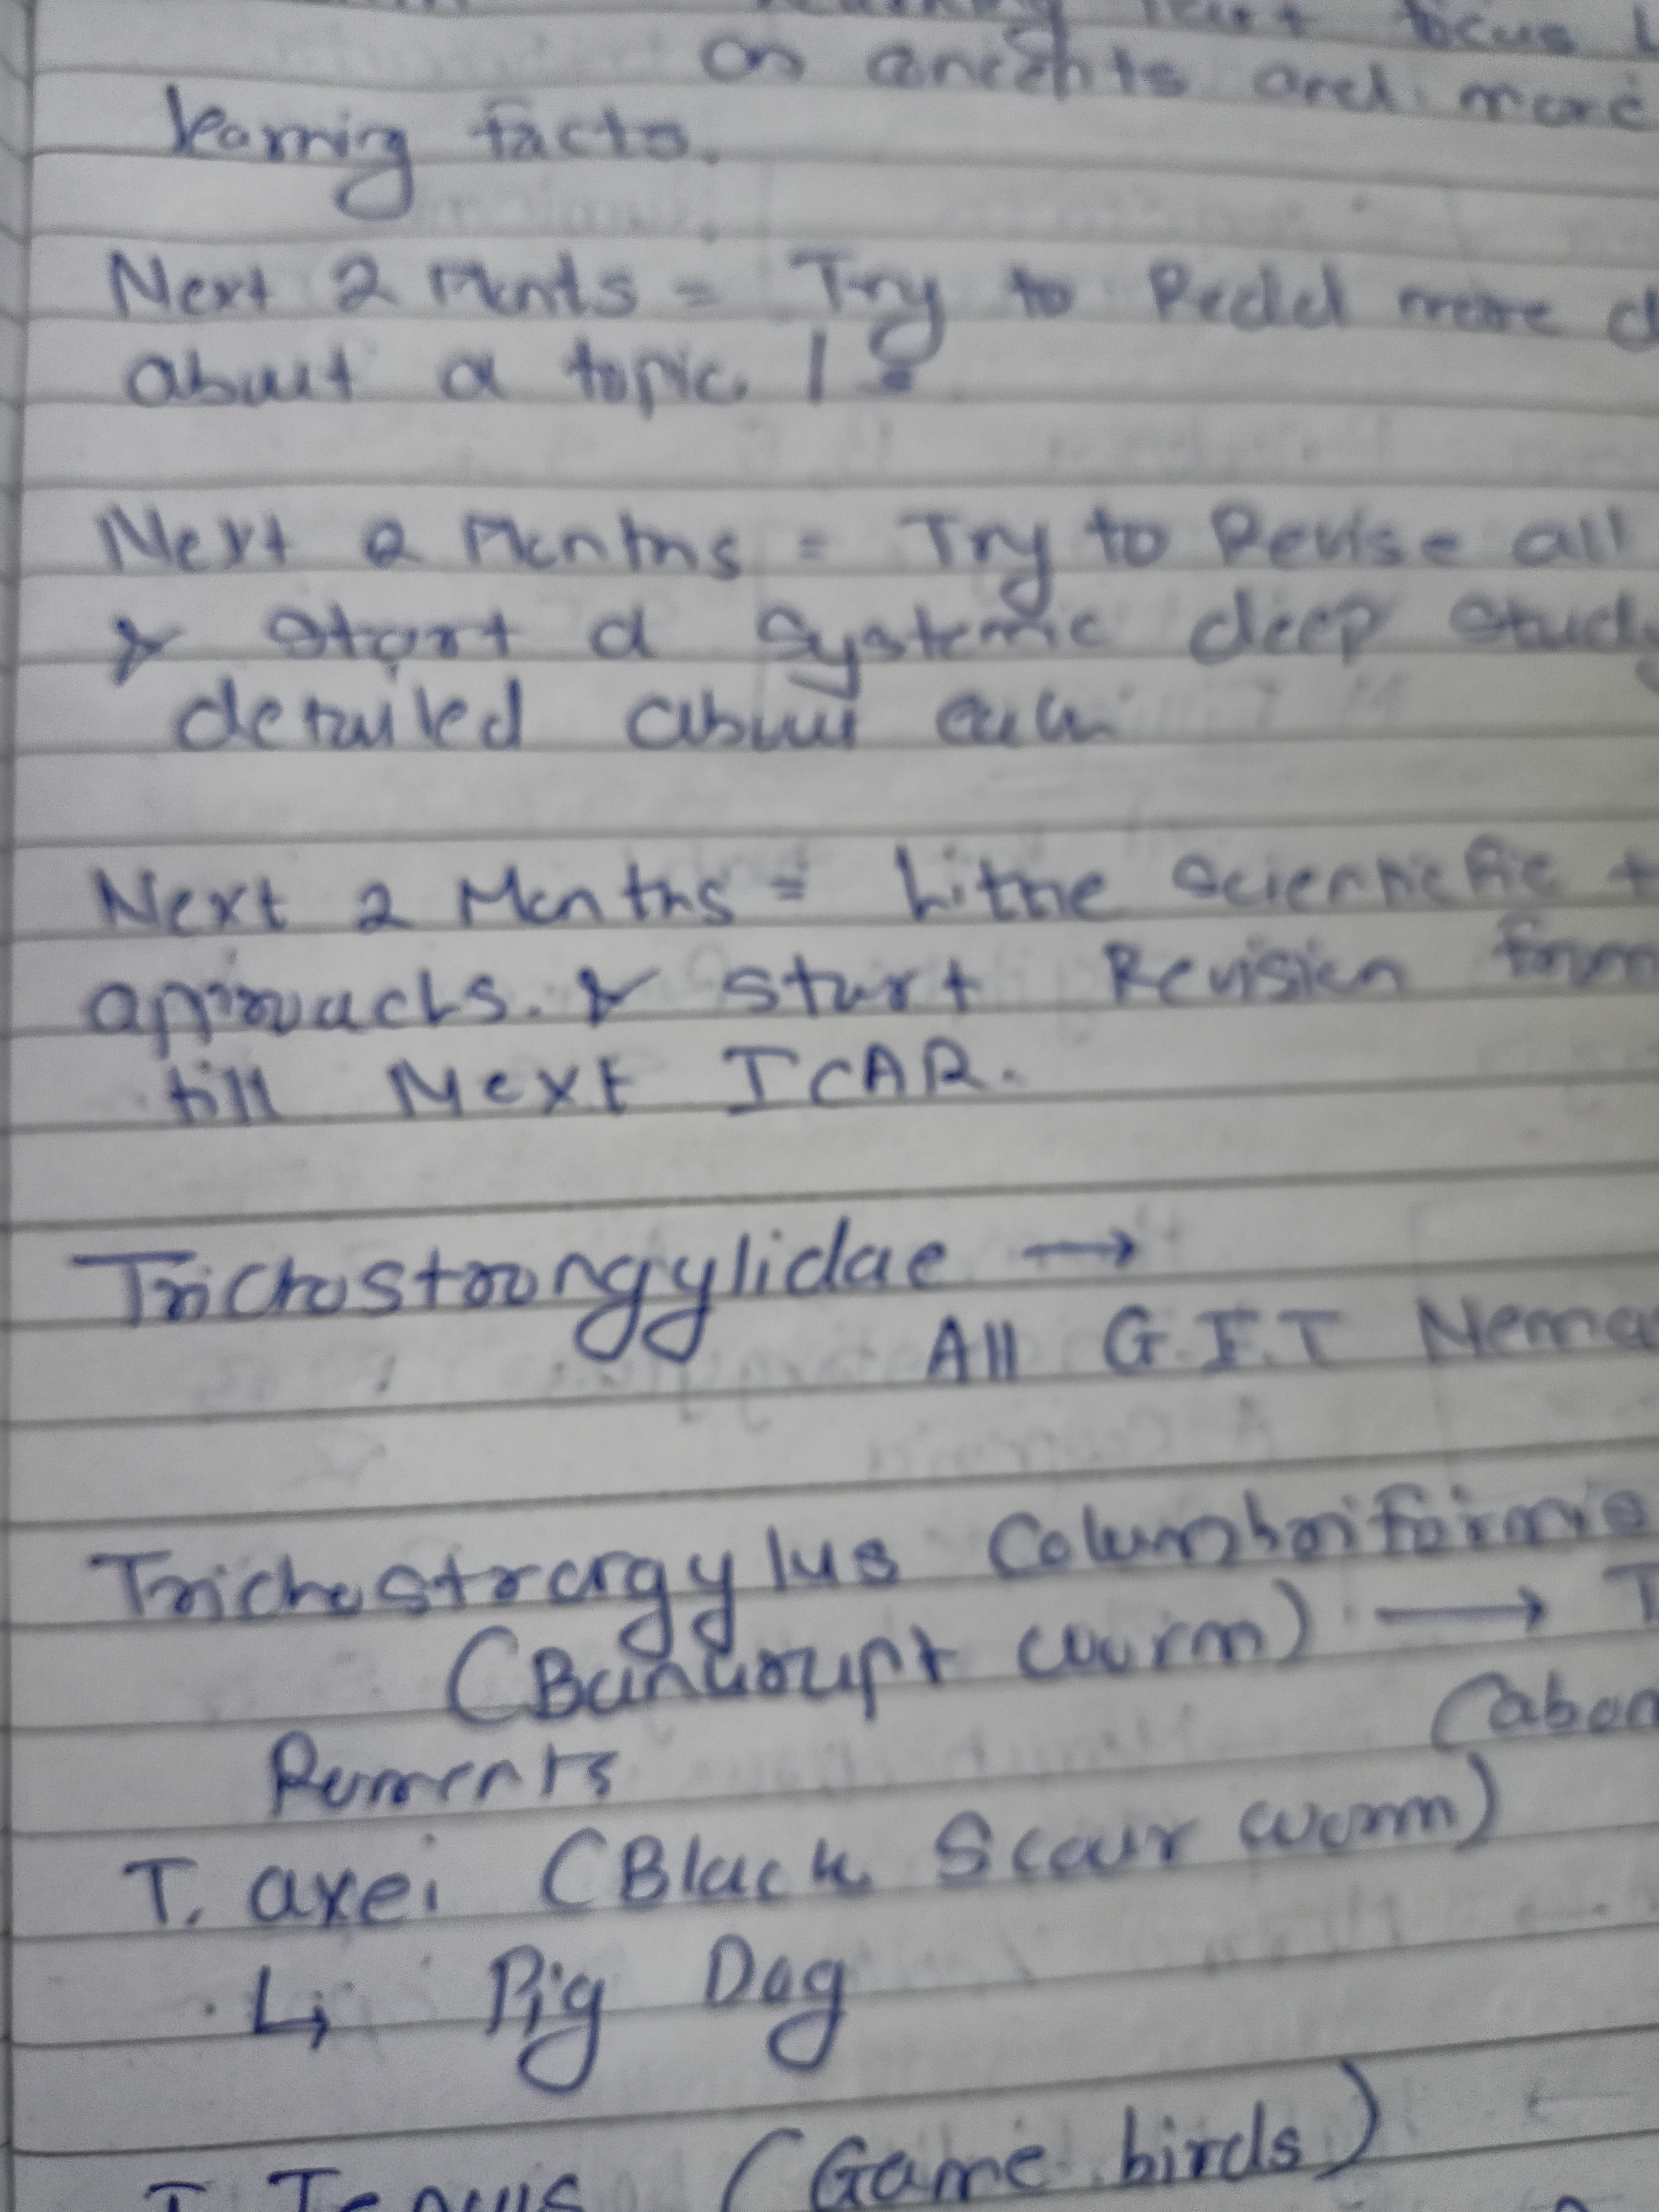 focus
on and more
learning facts.
Next 2 = Try to Readd more
about a topic !
Next 2 Months = Try to Revise all
& start a systemic deep study
detailed about each
Next 2 Months = scientific
& start Revision from
till Next ICAR.
Trichostrongylidae →
All G.I.T Nema
Trichostrongylus Columbriformis
(Bankrupt worm) → T
(abom
Ruments
T. axei (Black Scour worm)
↳ Pig Dog
T. Tenuis (Game birds)